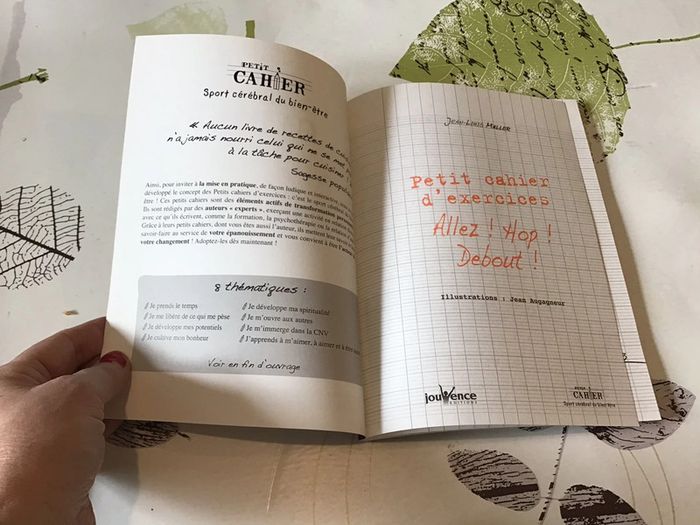 PETIT
CAHIER
Sport cérébral du bien-être
« Aucun livre de recettes de
n'a jamais nourri celui qui ne se met
à la tâche pour cuisiner
Sagesse
Ainsi, pour inviter à la mise en pratique, de façon ludique et interactive,
développé le concept des Petits cahiers d'exercices : c'est le sport cérébral
être ! Ces petits cahiers sont des éléments actifs de transformation
Ils sont rédigés par des auteurs « experts », exerçant une activité en relation
avec ce qu'ils écrivent, comme la formation, la psychothérapie ou la relation d'
Grâce à leurs petits cahiers, dont vous êtes aussi l'auteur, ils mettent leur savoir et
savoir-faire au service de votre épanouissement et vous convient à être l'
votre changement ! Adoptez-les dès maintenant !
8 thématiques :
Je prends le temps
Je me libère de ce qui me pèse
Je développe mes potentiels
Je cultive mon bonheur
Je développe ma spiritualité
Je m'ouvre aux autres
Je m'immerge dans la CNV
J'apprends à m'aimer, à aimer et à être
Voir en fin d'ouvrage
Jean-Louis Muller
Petit cahier
d'exercices
Allez ! Hop !
Debout !
Illustrations : Jean Augagneur
jouvence
EDITIONS
PETIT
CAHIER
Sport cérébral du bien-être